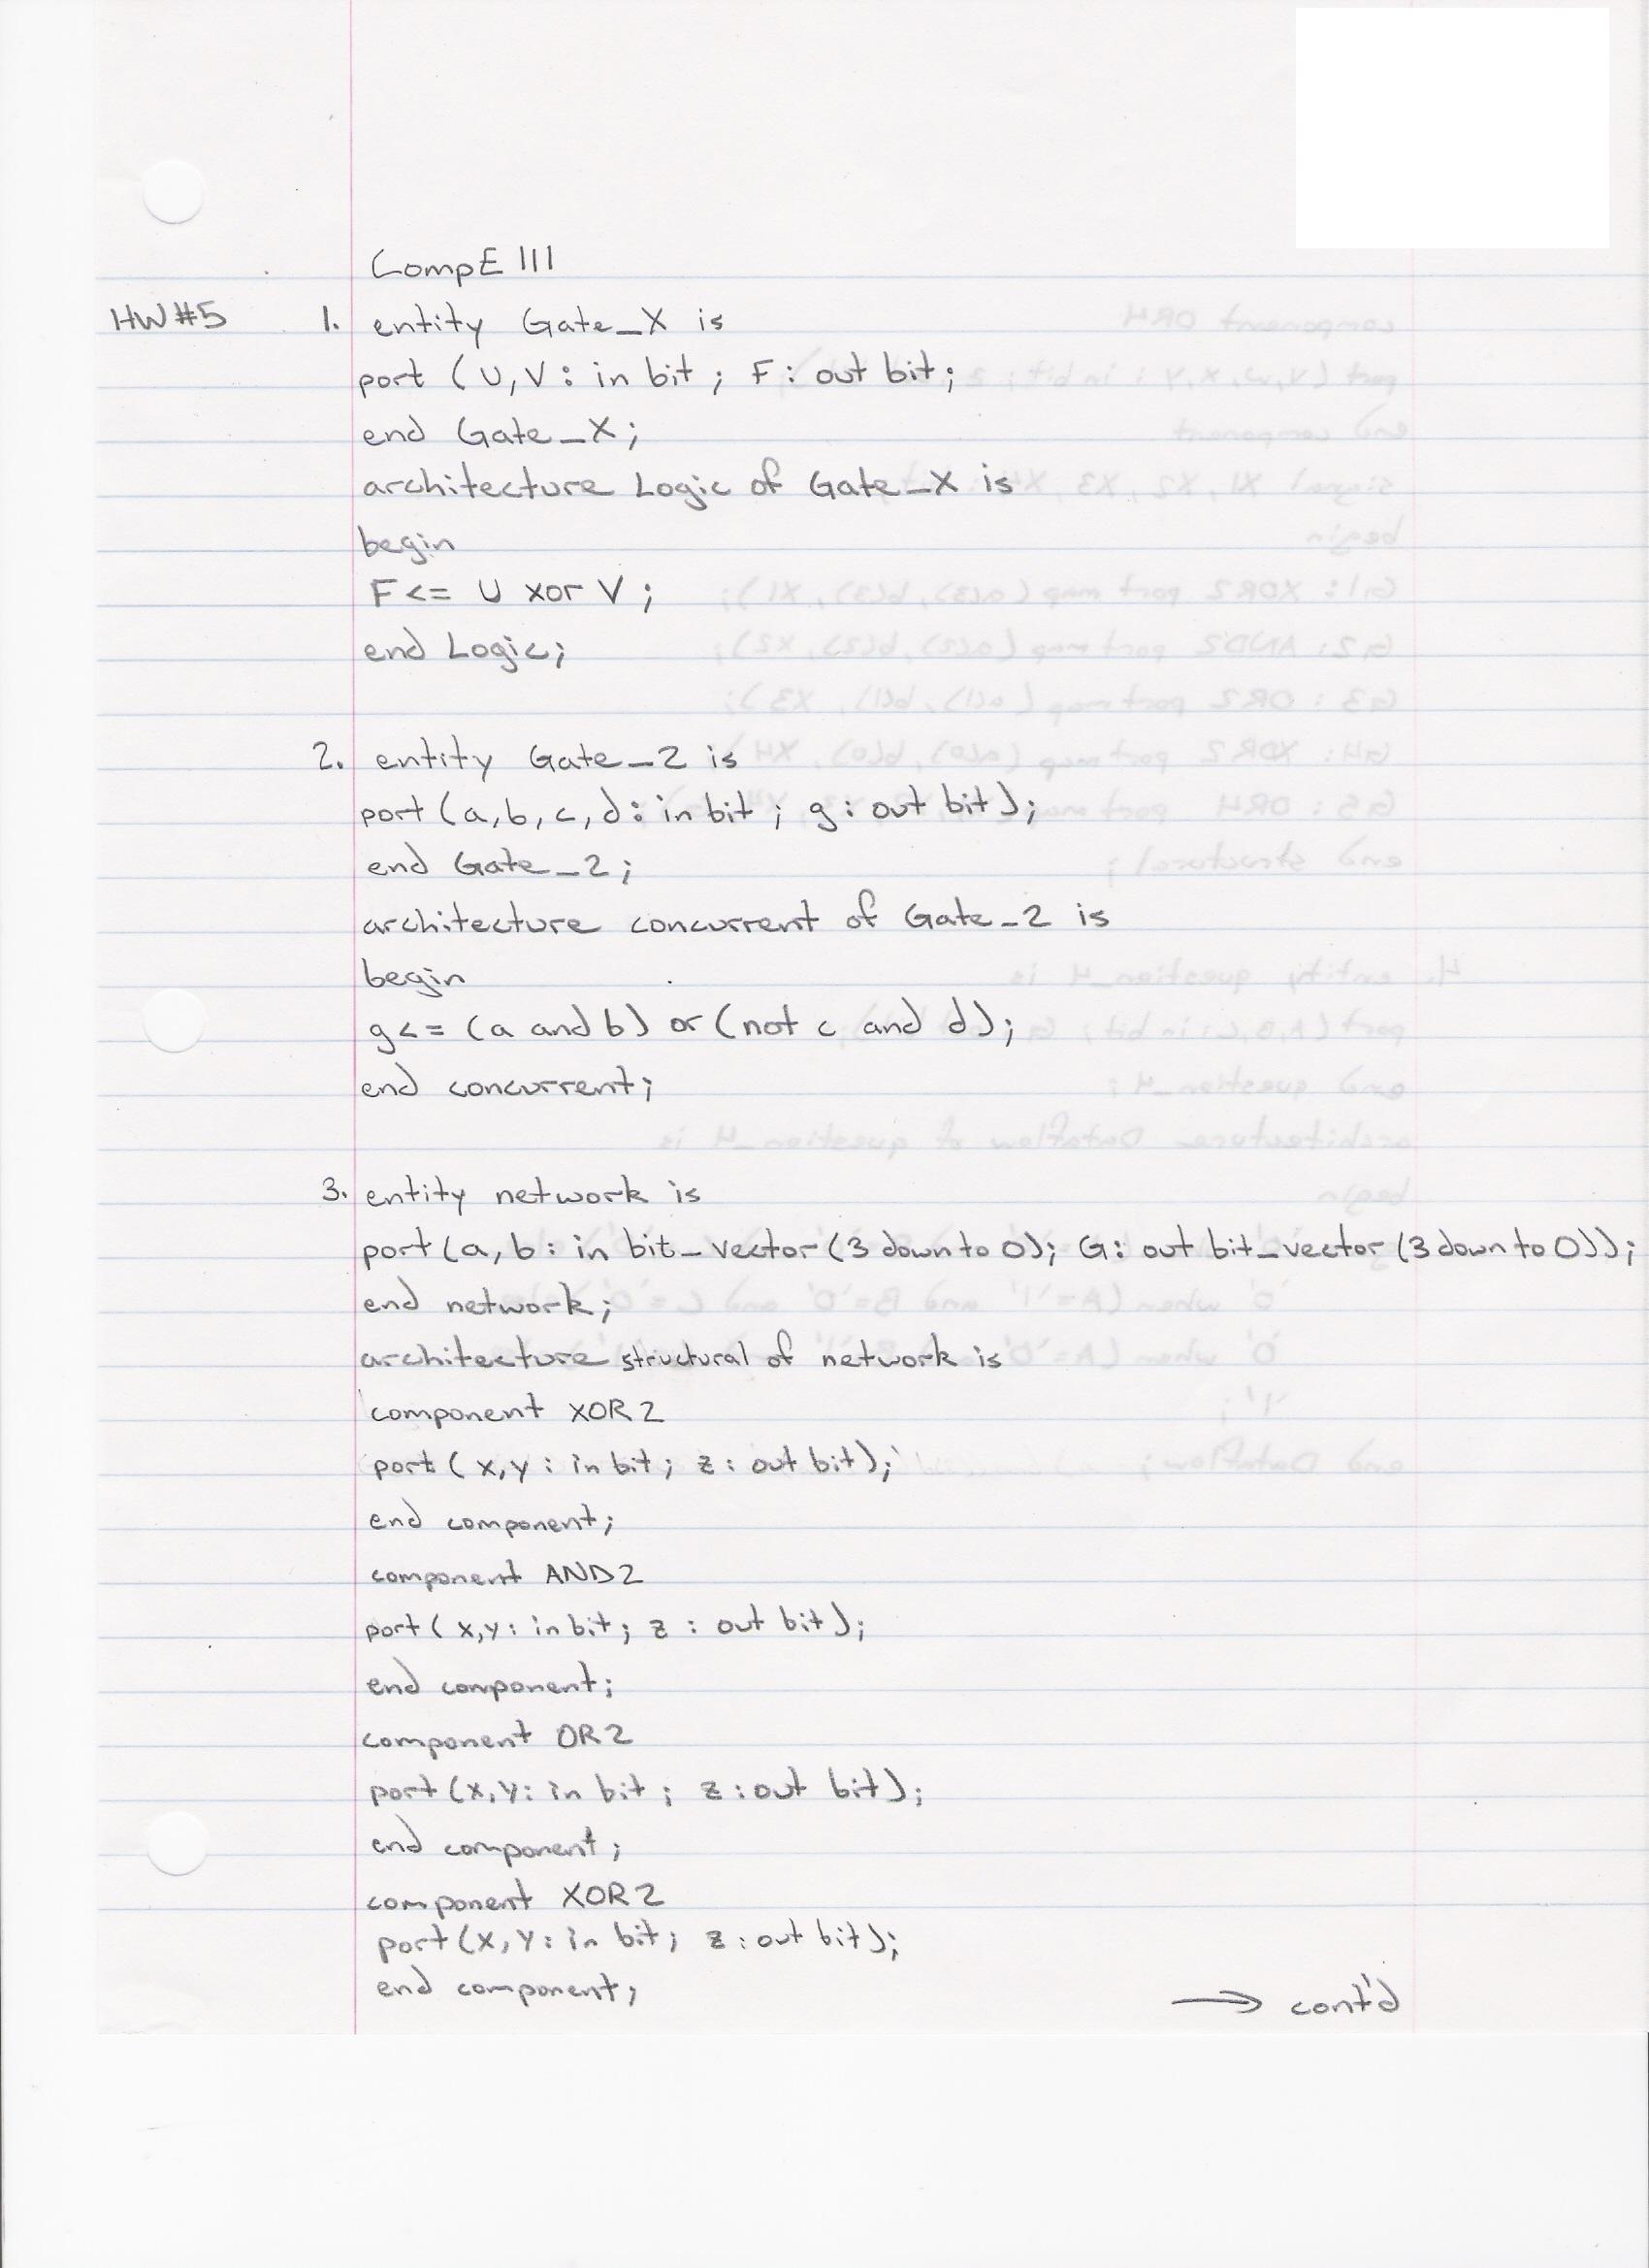 CompE 111
HW #5 1. entity Gate_X is
port (U,V: in bit; F: out bit;
end Gate_X;
architecture Logic of Gate_X is
begin
F<= U xor V;
end Logic;
2. entity Gate_2 is
port (a,b,c,d: in bit; g: out bit);
end Gate_2;
architecture concurrent of Gate_2 is
begin
g<= (a and b) or (not c and d);
end concurrent;
3. entity network is
port(a,b: in bit_vector(3 down to 0); G: out bit_vector(3 down to 0));
end network;
architecture structural of network is
component XOR2
port (x,y: in bit; z: out bit);
end component;
component AND2
port (x,y: in bit; z: out bit);
end component;
component OR2
port (x,y: in bit; z: out bit);
end component;
component XOR2
port (x,y: in bit; z: out bit);
end component;
→ cont'd